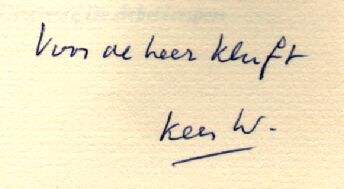 Voor de heer Kluft
Kees W.